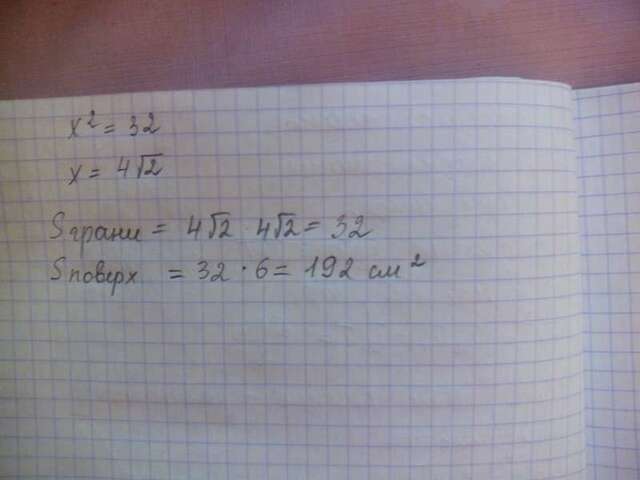 x² = 32
x = 4√2
S грани = 4√2 · 4√2 = 32
S поверх = 32 · 6 = 192 см²